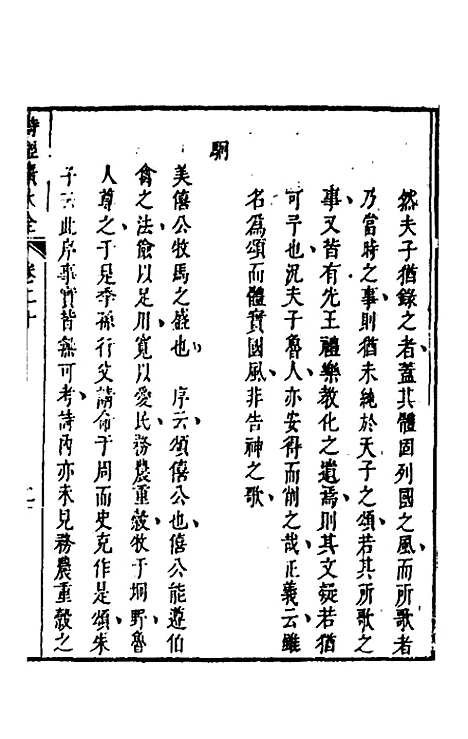 然夫子猶錄之者蓋其體固列國之風而所歌者
乃當時之事則猶未純於天子之頌若其所歌之
事又皆有先王禮樂教化之遺焉則其文疑若猶
可予也況夫子魯人亦安得而削之哉正義云雖
名為頌而體實國風非告神之歌
駉
美僖公牧馬之盛也 序云頌僖公也僖公能遵伯
禽之法儉以足用寬以愛民務農重穀牧于坰野魯
人尊之于是季孫行父請命于周而史克作是頌朱
子云此序事實皆無可考詩內亦未見務農重穀之
詩經廣大全 卷二十